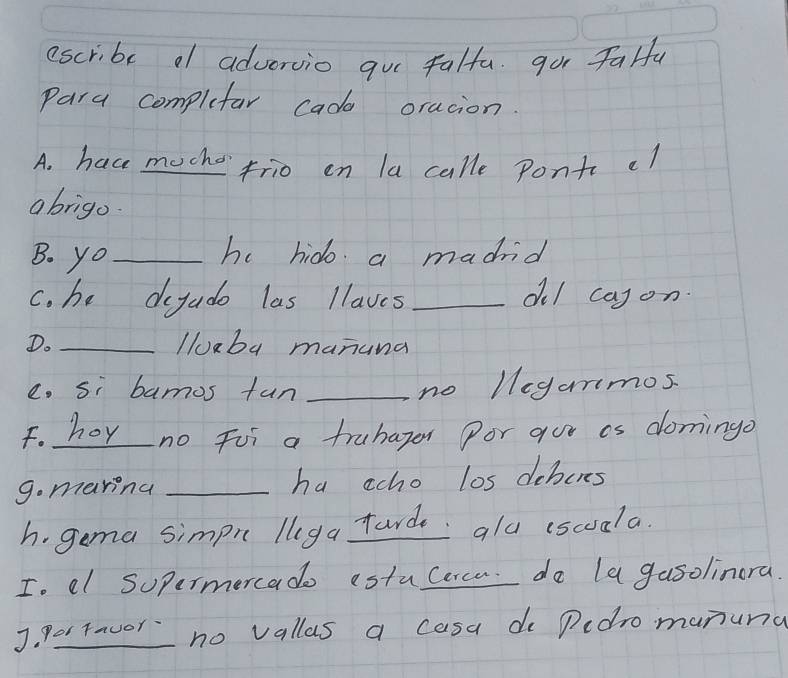 escribe el advervio que falta. que falta
para completar cada oracion.
A. hace mucho frio en la calle Ponte el
abrigo.
B. yo ____ he hido a madrid
c. he dejado las llaves ____ del cajon.
D. ____ llueba mañana
e. si bamos tan ____ no llegaremos.
F. hoy no fui a trabajar por que es domingo
g. marina ____ ha echo los deberes
h. gema simpre llega tarde a la escuela.
I. el supermercado esta cerca de la gasolinera.
J. Por favor no vallas a casa de Pedro mañana